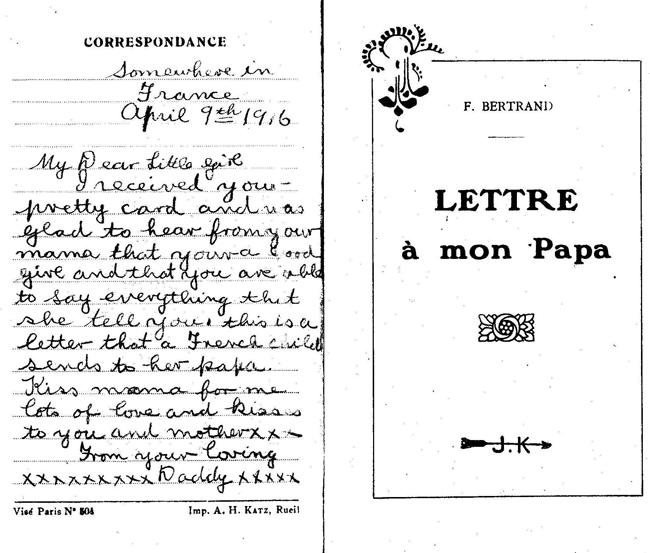 CORRESPONDANCE
Somewhere in
France
April 9th 1916
My Dear Little girl
I received your
pretty card and was
glad to hear from your
mama that your a good
girl and that you are able
to say everything that
she tell you. this is a
letter that a French child
sends to her papa.
Kiss mama for me
lots of love and kisses
to you and mother x x x
From your loving
x x x x x x x x x Daddy x x x x x
Visé Paris Nº 504
Imp. A. H. KATZ, Rueil
F. BERTRAND
LETTRE
à mon Papa
J.K